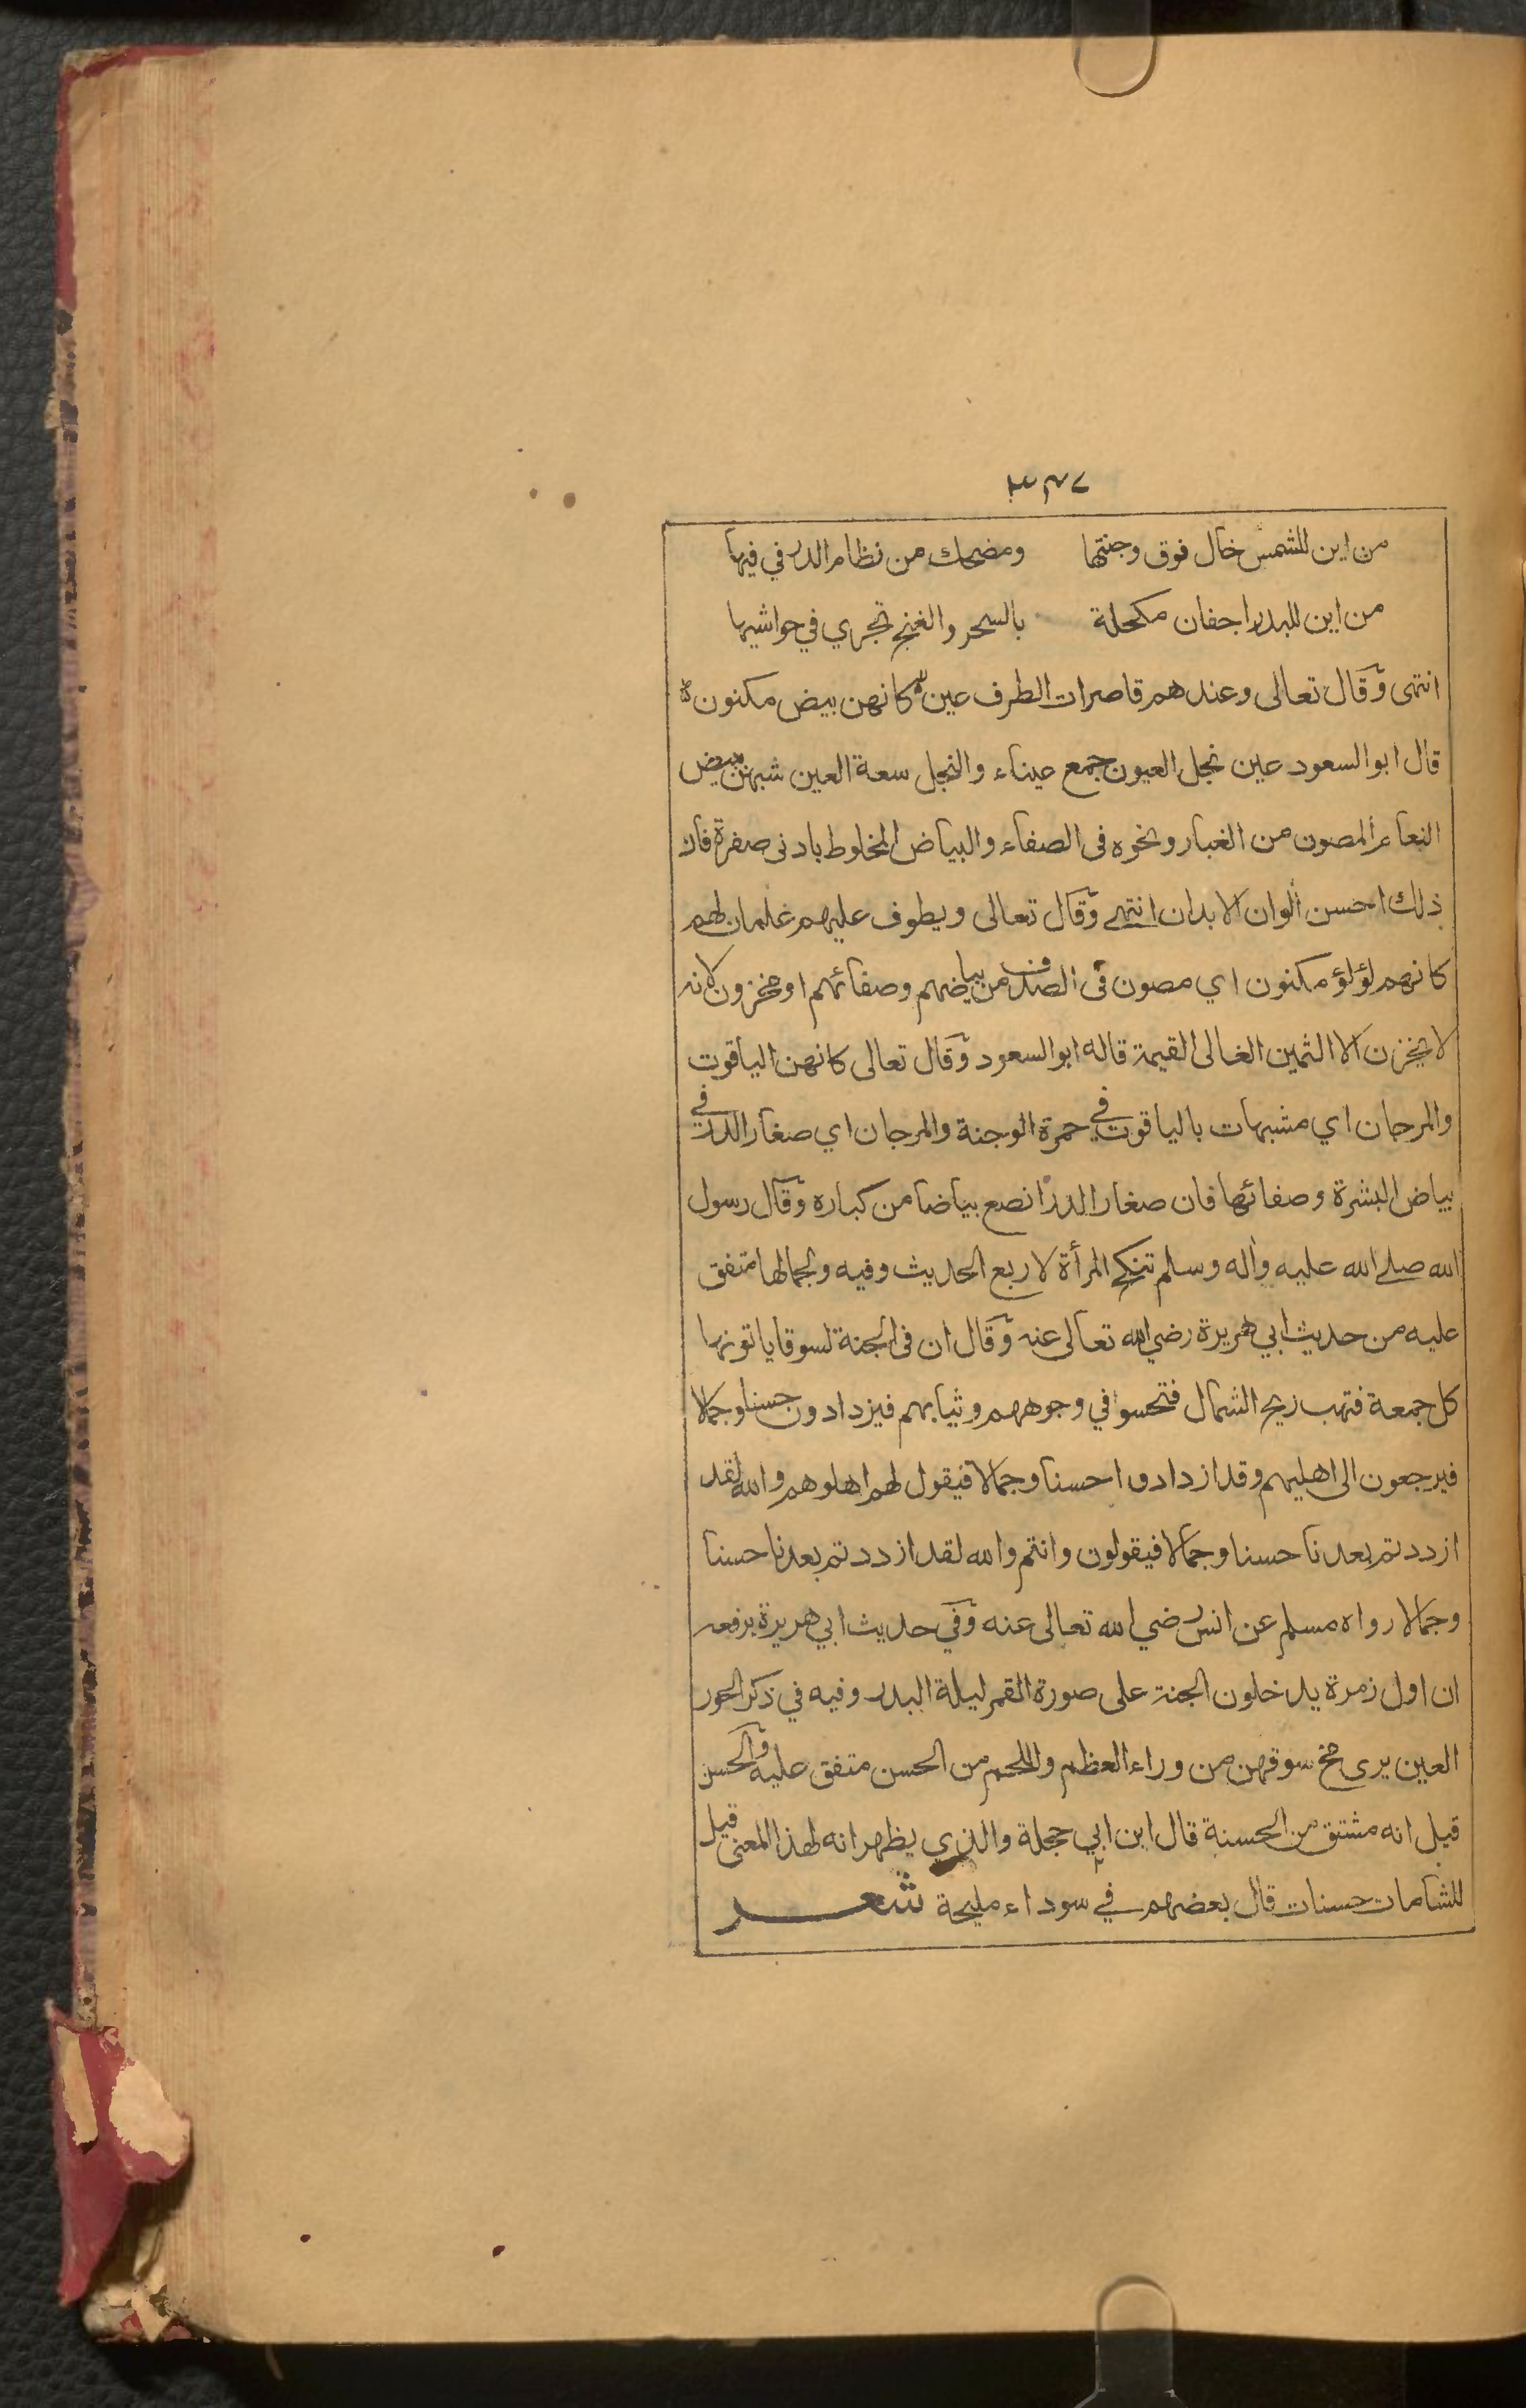 من اين للشمس خال فوق وجنتها ومضحك من نظام الدر في فيها
من اين للبدر اجفان مكحلة بالسحر والغنج تجري في حواشيها
انتهى وقال تعالى وعندهم قاصرات الطرف عين كانهن بيض مكنون
قال ابو السعود عين نجل العيون جمع عيناء والنجل سعة العين شبهن ببيض
النعام المصون من الغبار ونحوه فى الصفاء والبياض المخلوط بادنى صفرة فان
ذلك احسن ألوان الابدان انتهى وقال تعالى ويطوف عليهم غلمان لهم
كانهم لؤلؤ مكنون اي مصون فى الصدف من بياضهم وصفائهم او مخزون لانه
لا يخزن الا الثمين الغالى القيمة قاله ابو السعود وقال تعالى كانهن الياقوت
والمرجان اي مشبهات بالياقوت في حمرة الوجنة والمرجان اي صغار الدر في
بياض البشرة وصفائها فان صغار الدر انصع بياضا من كباره وقال رسول
الله صلى الله عليه وأله وسلم تنكح المرأة لاربع الحديث وفيه ولجمالها متفق
عليه من حديث ابي هريرة رضي الله تعالى عنه وقال ان فى الجنة لسوقا ياتونها
كل جمعة فتهب ريح الشمال فتحسوا في وجوههم وثيابهم فيزدادون حسنا وجمالا
فيرجعون الى اهليهم وقد ازدادوا حسنا وجمالا فيقول لهم اهلوهم والله لقد
ازددتم بعدنا حسنا وجمالا فيقولون وانتم والله لقد ازددتم بعدنا حسنا
وجمالا رواه مسلم عن انس رضي الله تعالى عنه وفي حديث ابي هريرة يرفعه
ان اول زمرة يدخلون الجنة على صورة القمر ليلة البدر وفيه في ذكر الحور
العين يرى مخ سوقهن من وراء العظم واللحم من الحسن متفق عليه والحسن
قيل انه مشتق من الحسنة قال ابن ابي حجلة والذي يظهر انه لهذا المعنى قيل
للشامات حسنات قال بعضهم في سوداء مليحة شعر